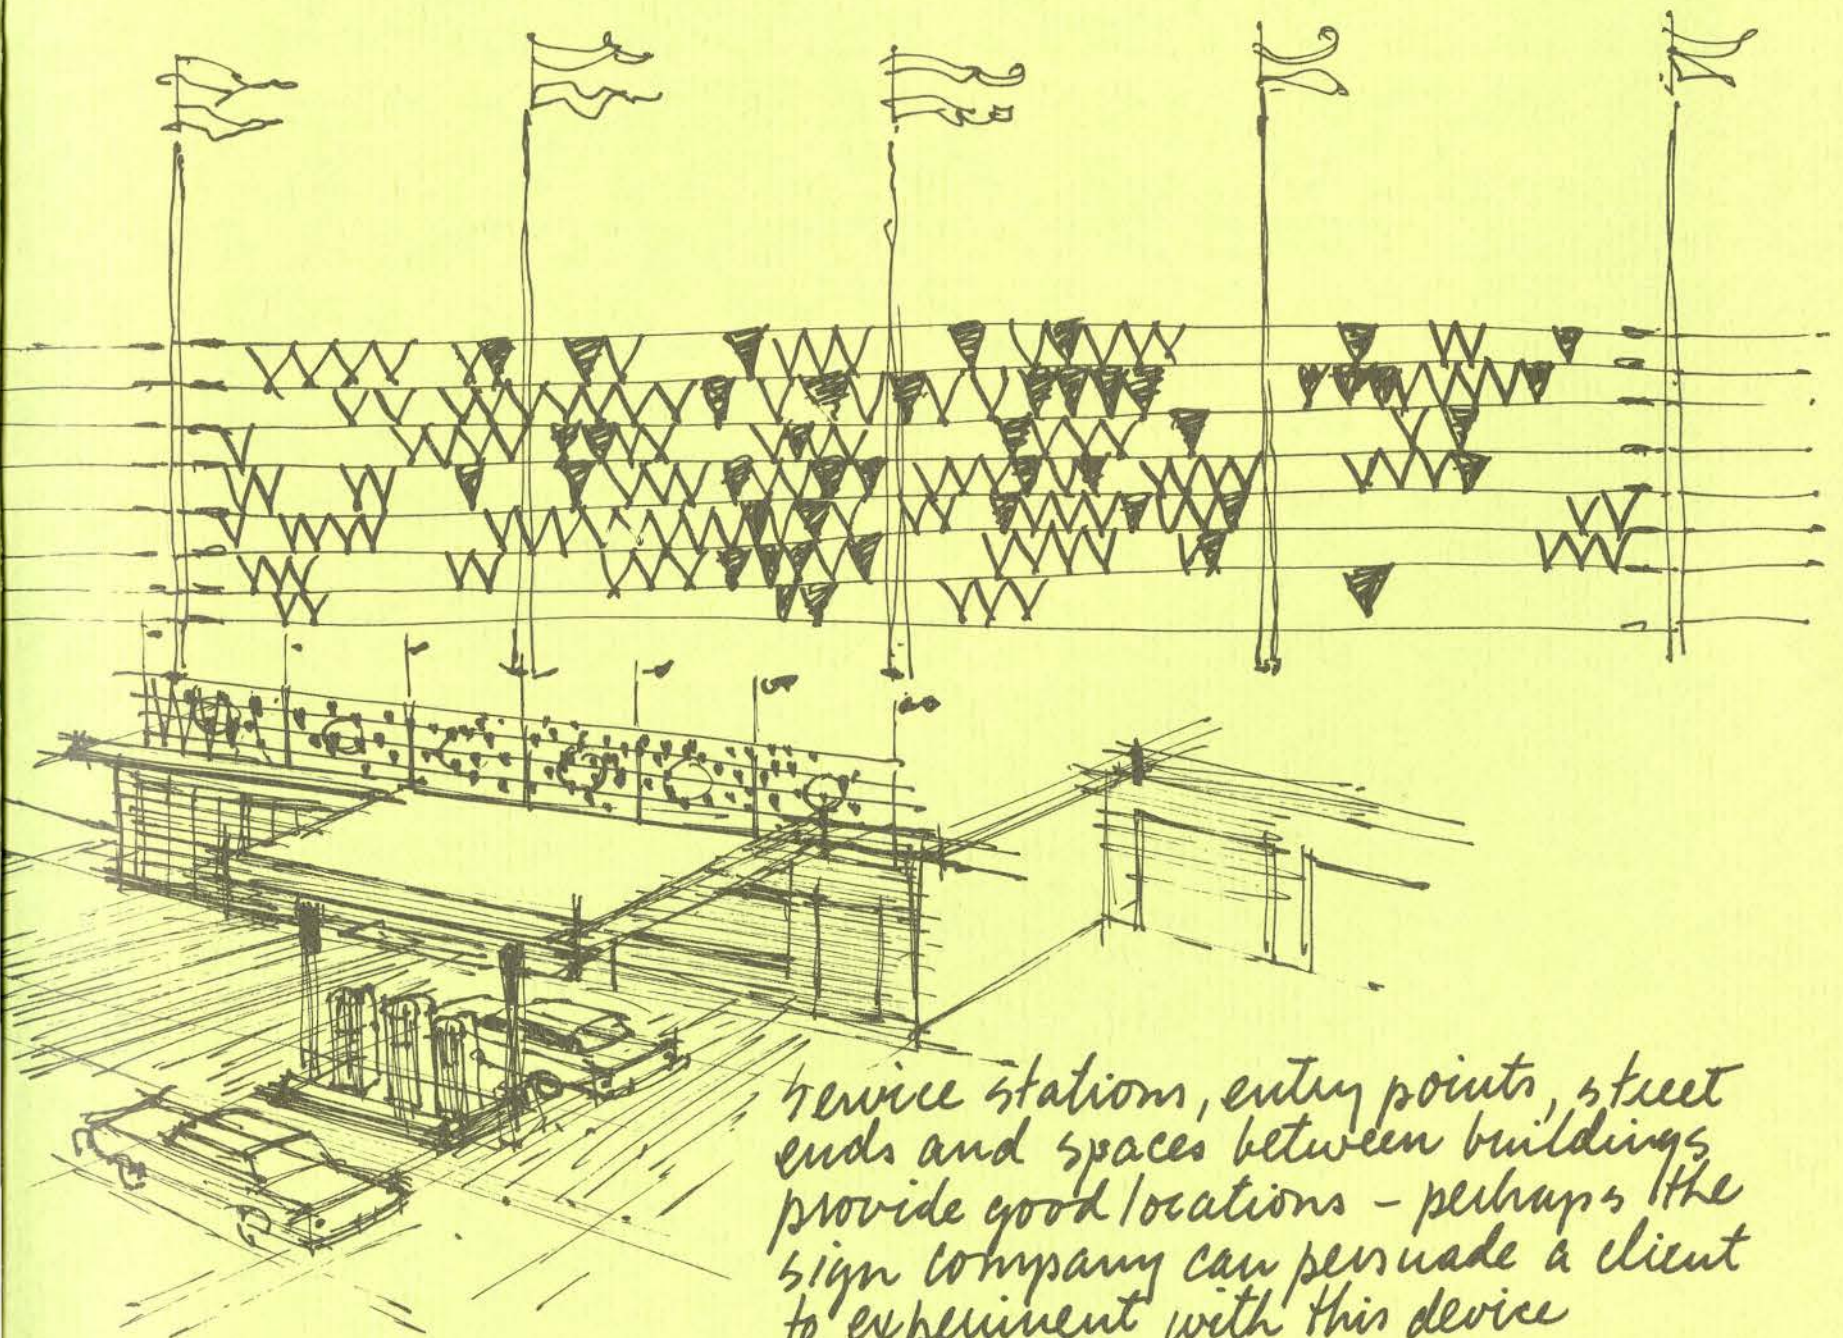 service stations, entry points, street
ends and spaces between buildings
provide good locations – perhaps the
sign company can persuade a client
to experiment with this device